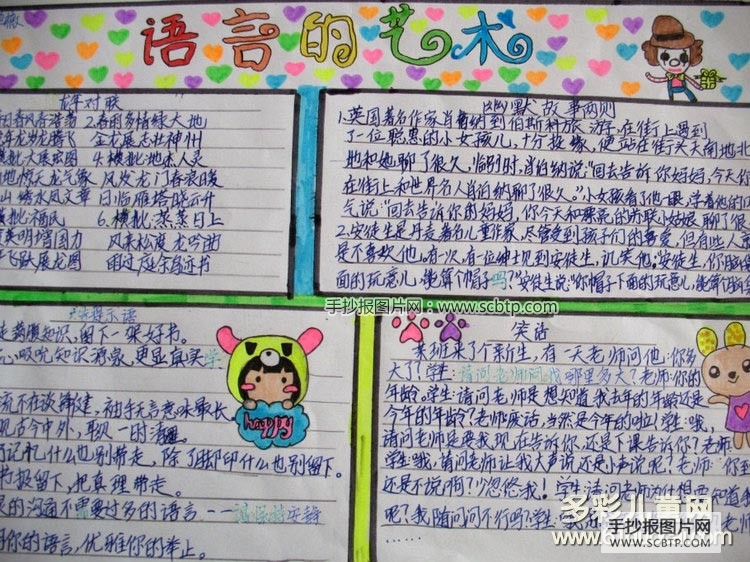 语言的艺术
龙年对联
春风春 2.春雨多情绿大地
龙岁龙腾飞 金龙展志壮神州
横批:大展宏图 4.横批:地杰人灵
地惊天龙气象 风发龙门春浪暖
山绣水凤文章 日临雁塔晓云开
福民 6.横批:蒸蒸日上
增国力 风来松度龙吟曲
飞跃展龙图 雨过庭余鸟迹书
幽默故事两则
1.英国著名作家肖伯纳到伯斯科旅游,在街上遇到
了一位聪慧的小女孩儿,十分投缘,便站在街头天南地北
地和她聊了很久,临别时,肖伯纳说:"回去告诉你妈妈,今天你
在街上和世界名人肖伯纳聊了很久。"小女孩看了他一眼,学着他的口
气说:"回去告诉你的妈妈,你今天和漂亮的苏联小姑娘聊了很
2.安徒生是丹麦著名儿童作家,尽管受到孩子们的喜爱,但有些人
是不喜欢他,有一次,有一位绅士见到安徒生,讥笑他:安徒生,你脑
面的玩意儿,能算个帽子吗?"安徒生说:"你帽子下面的玩意儿,能算
手抄报图片网:www.scbtp.com
提示语
走万卷知识,留下一架好书。
心,吸吮知识源泉,更显真实
流不在谈锋健,袖手无言味最长
古今中外,取一时清
记忆什么也别带走,除了脚印什么也别留下。
书报留下,把真理带走。
的沟通不需要过多的语言——请保持安静
你的语言,优雅你的举止。
happy
笑话
来班来了个新生,有一天老师问他:你多
大了?学生:请问老师问我哪里多大?老师:你的
年龄。学生:请问老师是想知道我去年的年龄还是
今年的年龄?老师:废话,当然是今年的啦!学生:哦,
请问老师是要我现在告诉你,还是下课告诉你?老师:
学生:哦,请问老师让我大声说还是小声说呢?老师:你
还是不说啊?少忽悠我!学生:请问老师为什么要知道
呢?我随问问不行吗?学生:我
……
多彩儿童网
手抄报图片网
WWW.SCBTP.COM